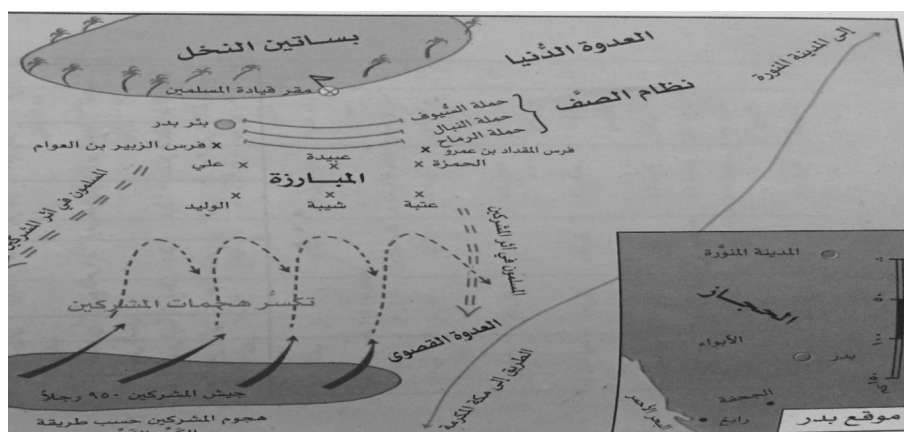 بساتين النخل
العدوة الدُنيا
إلى المدينة المنورة
مقر قيادة المسلمين
نظام الصفّ
حملة السُيوف
حملة النبال
حملة الرماح
بئر بدر
فرس الزبير بن العوام
فرس المقداد بن عمرو
علي
عبيدة
الحمزة
المبارزة
الوليد
شيبة
عتبة
المسلمون في أثر المشركين
المسلمون في أثر المشركين
تكسُّر هجمات المشركين
العدوة القصوى
الطريق إلى مكة المكرمة
جيش المشركين ٩٥٠ رجلاً
هجوم المشركين حسب طريقة
المدينة المنوّرة
الحجاز
الأبواء
بدر
الجحفة
رابغ
البحر الأحمر
موقع بدر